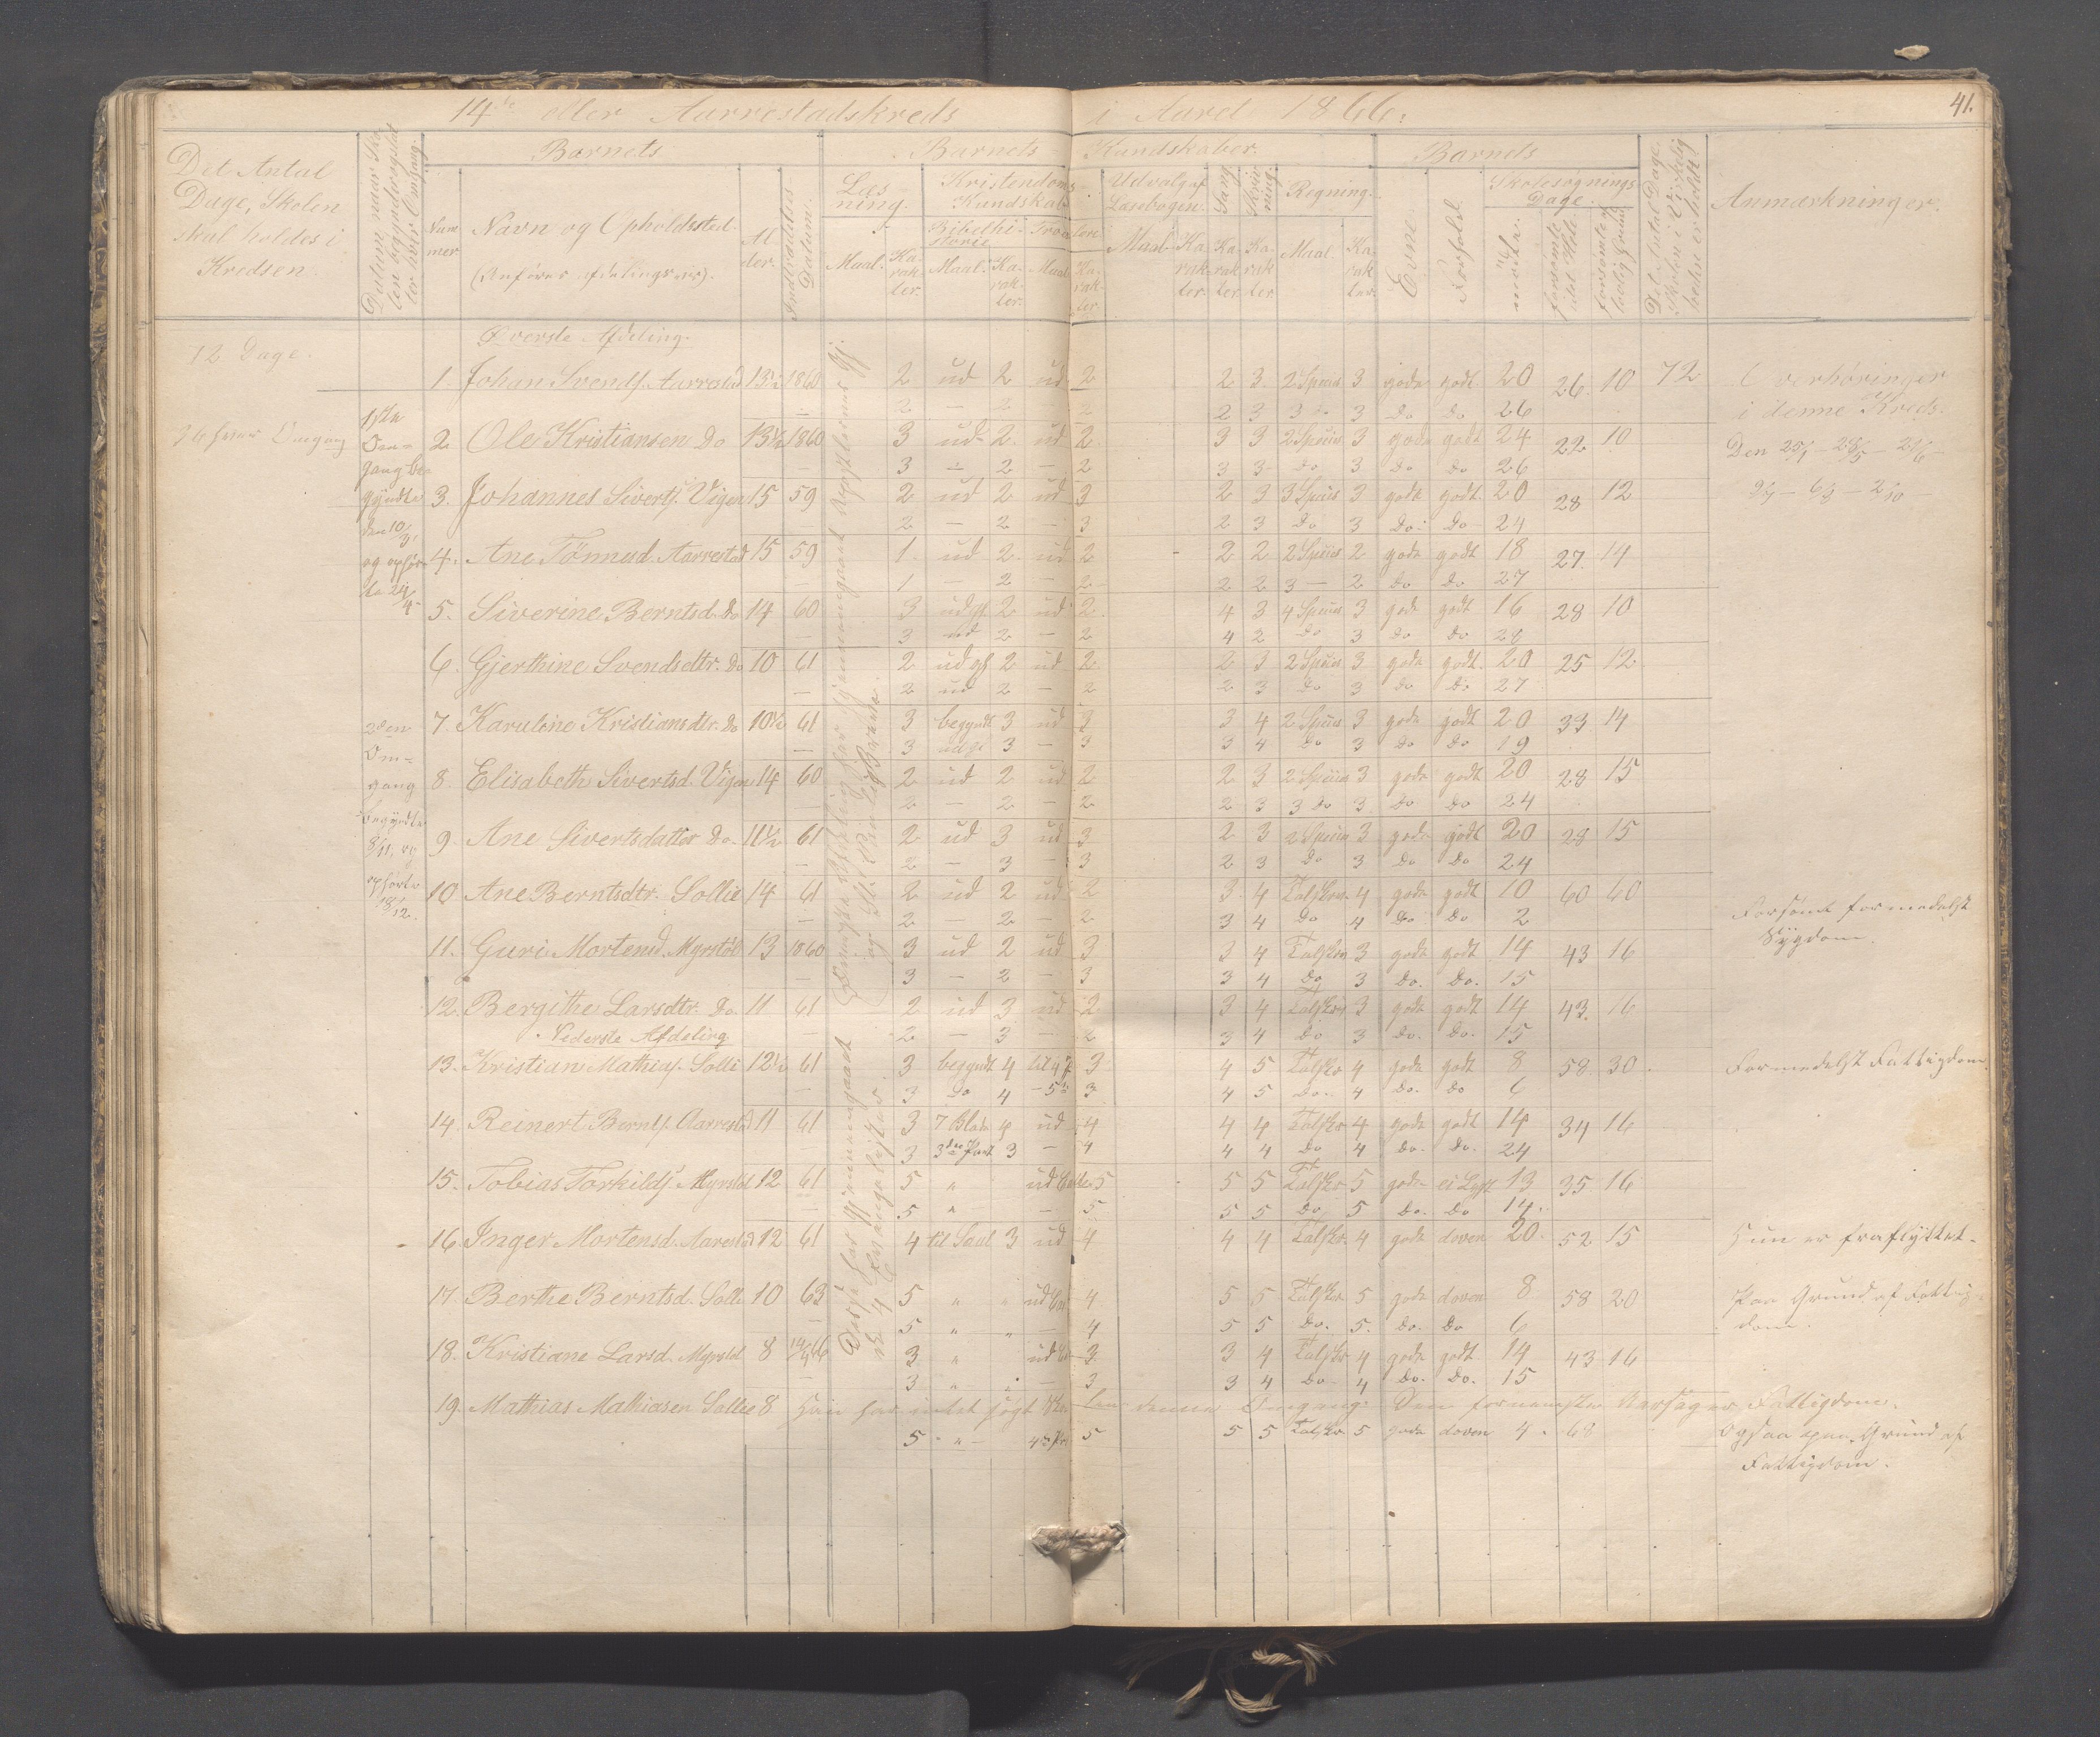 14de eller Aarrestadskreds i Aaret 1866.
41.
Det Antal Dage, Skolen skal holdes i Kredsen.
Datum, naar Skolen begyndes og slutter hver Omgang.
Barnets
Nummer
Navn og Opholdssted.
(Anføres afdelingsvis).
Alder.
Indtrædelses-Datum.
Barnets Kundskaber.
Læsning.
Maal. Karakter.
Kristendoms Kundskab
Bibelhistorie
Maal. Karakter.
Troeslære
Maal Karakter.
Udvalg af Læsebogen.
Maal Karakter.
Sang Karakter.
Skrivning. Karakter.
Regning.
Maal Karakter.
Barnets
Evne.
Forhold.
Skolesøgnings Dage.
mødte.
forsømte i det Hele.
forsømte af lovlig Grund.
Det Antal Dage, Skolen i Virkeligheden er holdt.
Anmærkninger.
72 Dage.
36 hver Omgang
1ste Omgang begyndte den 10/3 og ophørte 24/4
2den Omgang begyndte 8/11 og ophørte 18/12.
Øverste Afdeling.
1. Johan Svends. Aarrestad 13½ 1860 2 ud 2 ud 2 2 3 2 Species 3 gode godt 20 26 10 72
2 — 2 — 2 2 3 3 — 3 Do Do 26
2. Ole Kristiansen Do 13½ 1860 3 ud 2 ud 2 3 3 2 Species 3 gode godt 24 22 10
3 — 2 — 2 3 3 Do 3 Do Do 26
3. Johannes Siverts. Vigen 15 59 2 ud 2 ud 3 2 3 3 Species 3 gode godt 20 28 12
2 — 2 — 3 2 3 Do 3 Do Do 24
4. Ane Tönnesd. Aarrestad 15 59 1. ud 2 ud 2 2 2 2 Species 2 gode godt 18 27 14
1 — 2 — 2 2 2 3 — 2 Do Do 27
5. Siverine Berntsd. Do 14 60 3 udgj 2 ud 2 4 3 4 Species 3 gode godt 16 28 10
3 ud 2 — 2 4 2 Do 3 Do Do 28
6. Gjerthine Svendsdtr. Do 10 61 2 udgj 2 ud 2 2 3 2 Species 3 gode godt 20 25 12
2 ud 2 — 2 2 3 Do 3 Do Do 27
7. Karuline Kristiansdtr. Do 10½ 61 3 begyndt 3 ud 3 3 4 2 Species 3 gode godt 20 33 14
3 udgj 3 — 3 3 4 Do 3 Do Do 19
8. Elisabeth Sivertsd. Vigen 14 60 2 ud 2 ud 2 2 3 2 Species 3 gode godt 20 28 15
2 — 2 — 2 2 3 3 Do 3 Do Do 24
9. Ane Sivertsdatter Do. 11½ 61 2 ud 3 ud 3 2 3 2 Species 3 gode godt 20 28 15
2 — 3 — 3 2 3 Do 3 Do Do 24
10. Ane Berntsdtr. Sollie 14 61 2 ud 2 ud 2 3 4 Talskr 4 gode godt 10 60 60 Forsømt formedelst Sygdom.
2 — 2 — 2 3 4 Do 4 Do Do 2
11. Guri Mortensd. Myrstöl 13 1860 3 ud 2 ud 3 3 4 Talskr 3 gode godt 14 43 16
3 — 2 — 3 3 4 Do 3 Do. Do. 15
12. Bergithe Larsdtr. Do. 11 61 2 ud 3 ud 2 3 4 Talskr 3 gode godt 14 43. 16
2 — 3 — 2 3 4 Do 3 Do. Do. 15
Nederste Afdeling
13. Kristian Mathias. Solli 12½ 61 3 begyndt 4 til 4 P 3 4 5 Talskr 4 gode godt 8 58 30 Formedelst Fattigdom.
3 Do 4 — 5te 3 4 5 Do. 4 Do. Do 6
14. Reinert Bernts. Aarrestad 11 61 3 7 Blade 4 ud 4 4 4 Talskr 4 gode godt 14 34 16
3 3die Part 3 — 4 4 4 Do 4 Do. Do. 24
15. Tobias Torkilds. Myrstöl 12 61 5 „ ud 5 5 5 Talskr 5 gode ei Lyst 13 35 16
5 „ — 5 5 5 Do. 5 Do. Do 14.
16. Inger Mortensd. Aarestad 12 61 4 til Saul 3 ud 4 4 4 Talskr 4 gode doven 20. 52 15 Hun er fraflyttet.
17. Berthe Berntsd. Solli 10 63 5 „ „ ud 4 5 5 Talskr 5 gode doven 8 58 20 Paa Grund af Fattigdom.
5 „ „ — 4 5 5 Do. 5. Do. Do 6
18. Kristiane Larsd. Myrstöl 8 14/4 66 3 „ ud 3 3 4 Talskr 4 gode godt 14 43 16
3 „ „ — 3 3 4 Do 4 Do. Do. 15
19. Mathias Mathiasen Sollie 8 Han har intet søgt Skolen denne Omgang. Den fornemste Aarsag er Fattigdom.
5 „ 4de P. 5 5 5 Talskr 5 gode doven 4 68 Ogsaa paa Grund af Fattigdom.
6 Overhøringer i denne Kreds.
Den 25/1 — 28/5 — 21/6